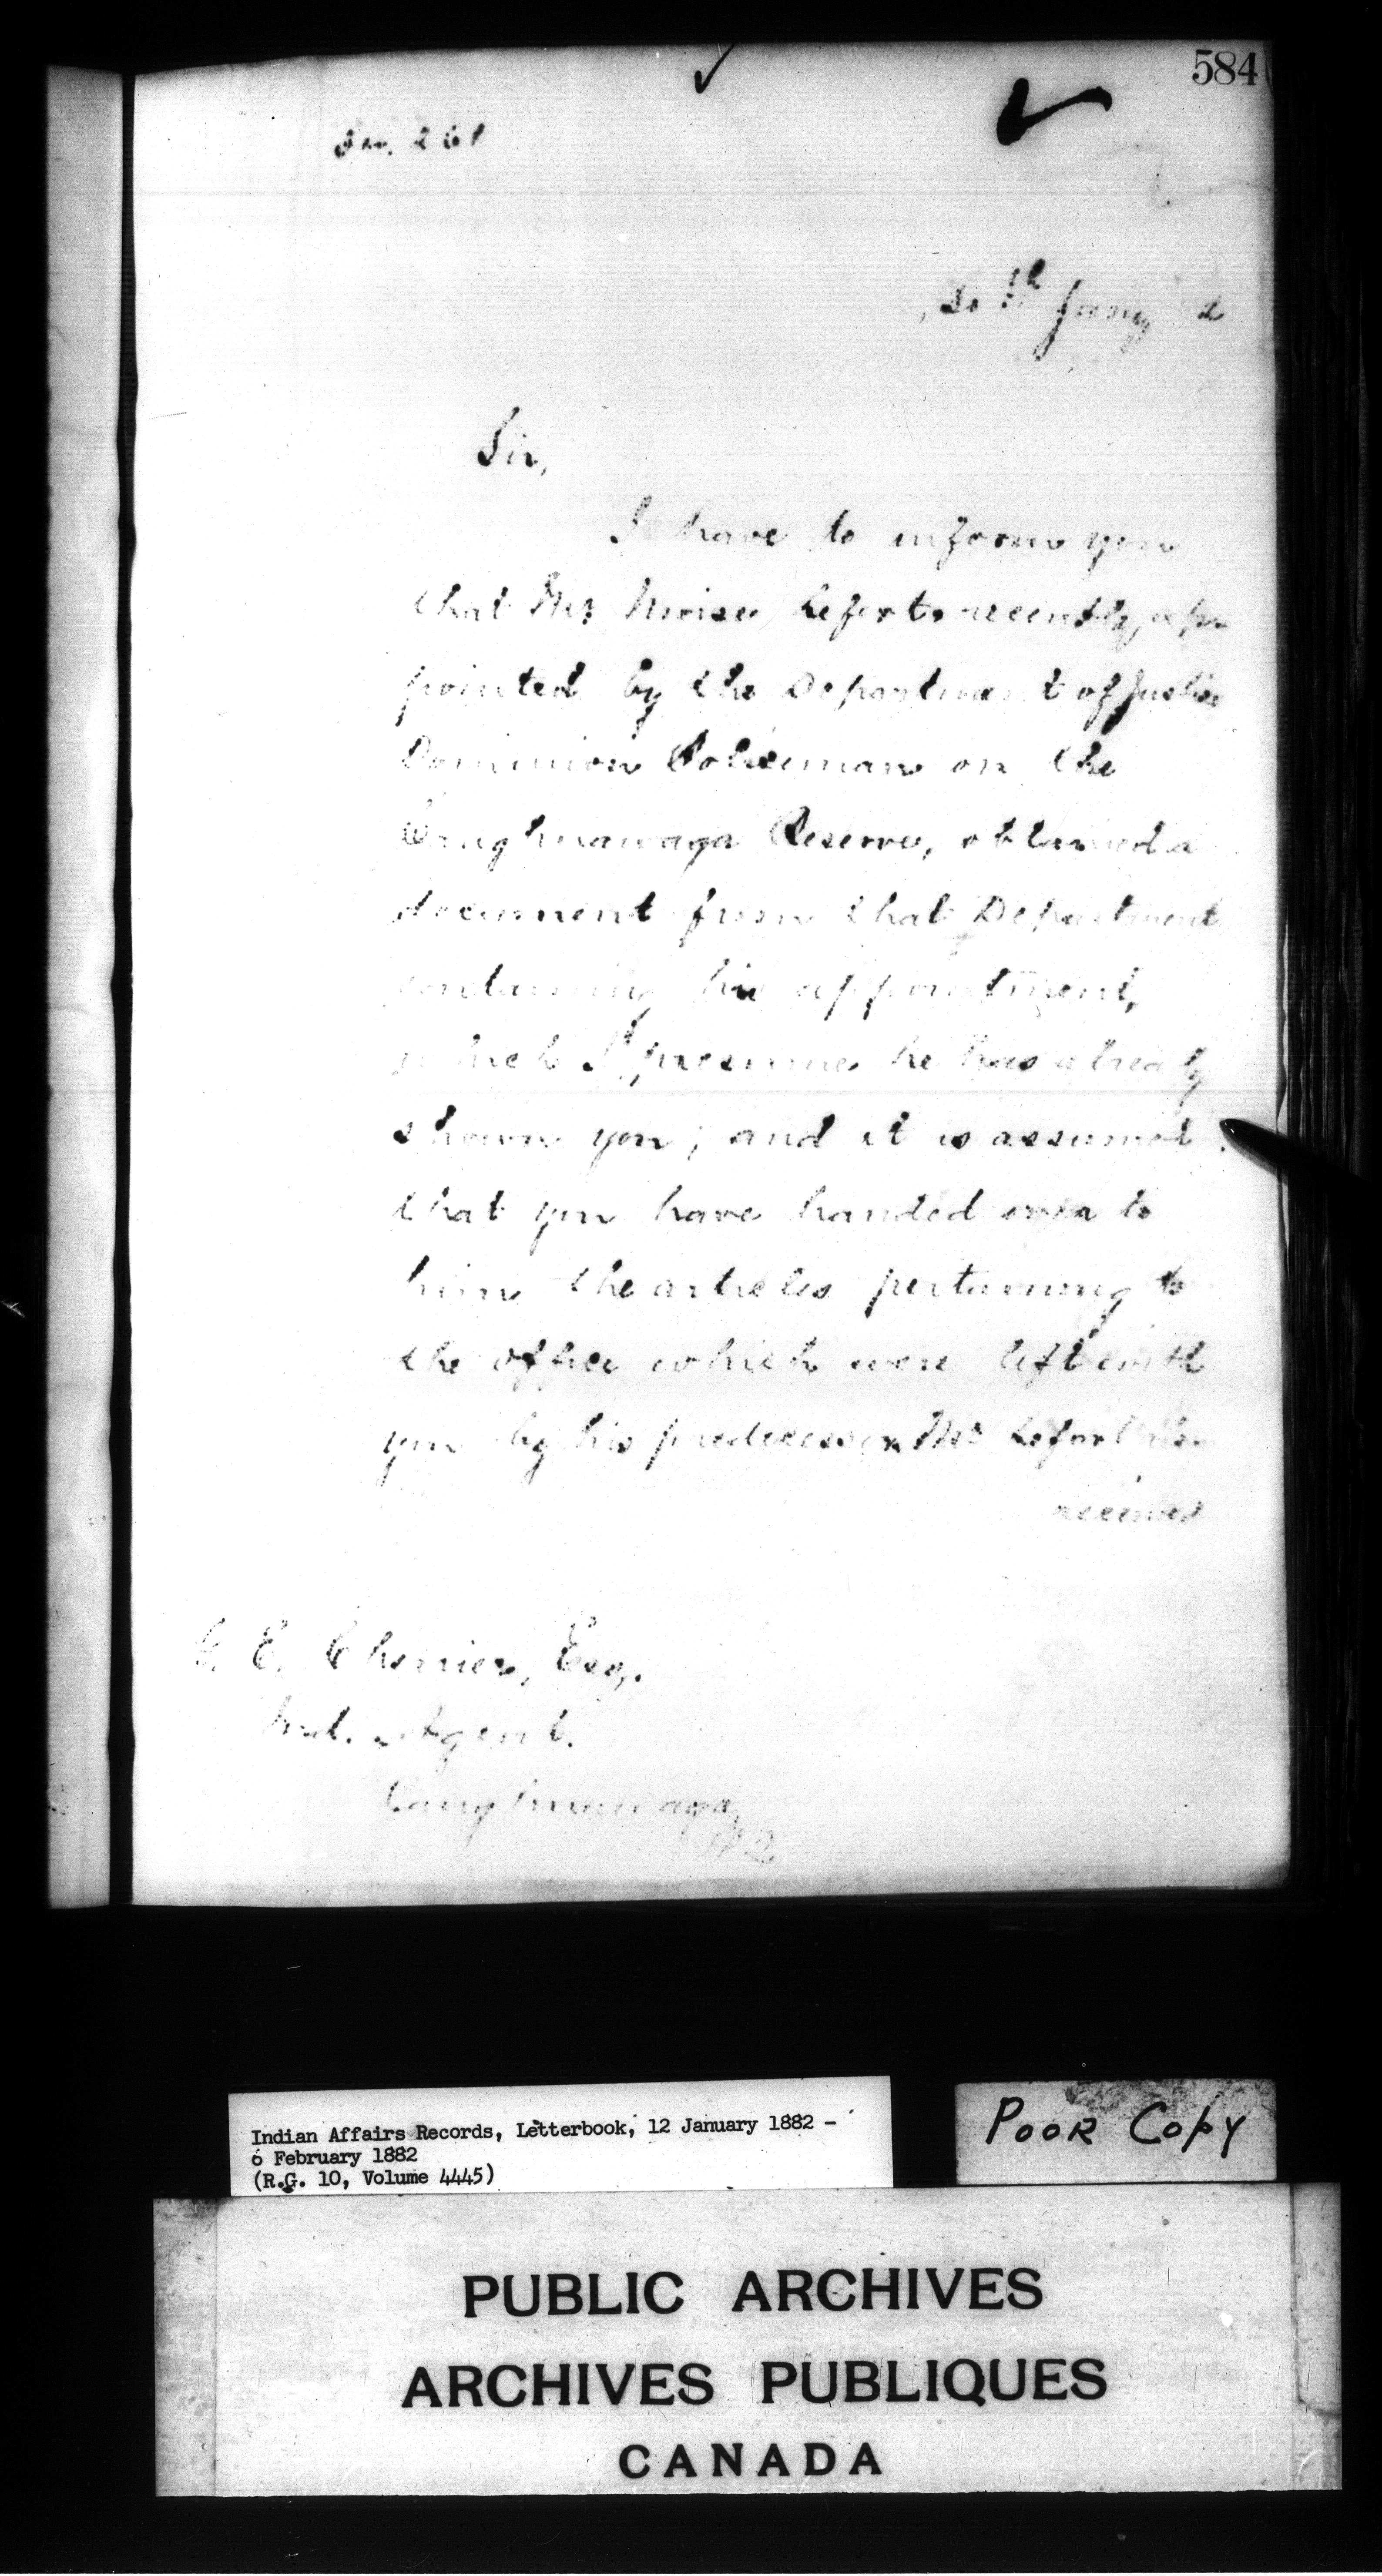 584
30th Jany 2
Sir,
I have to inform you
that Mr Moise Lefort recently ap
pointed by the Department of Justice
Dominion Policeman on the
Caughnawaga Reserve, obtained a
document from that Department
containing his appointment,
which I presume he has already
shown you; and it is assumed
that you have handed over to
him the articles pertaining to
the office which were left with
you by his predecessor. Mr Lefort also
received
G. E. Cherrier, Esq.
Ind. Agent.
Caughnawaga,
P.Q.
Indian Affairs Records, Letterbook, 12 January 1882 -
6 February 1882
(R.G. 10, Volume 4445)
POOR COPY
PUBLIC ARCHIVES
ARCHIVES PUBLIQUES
CANADA